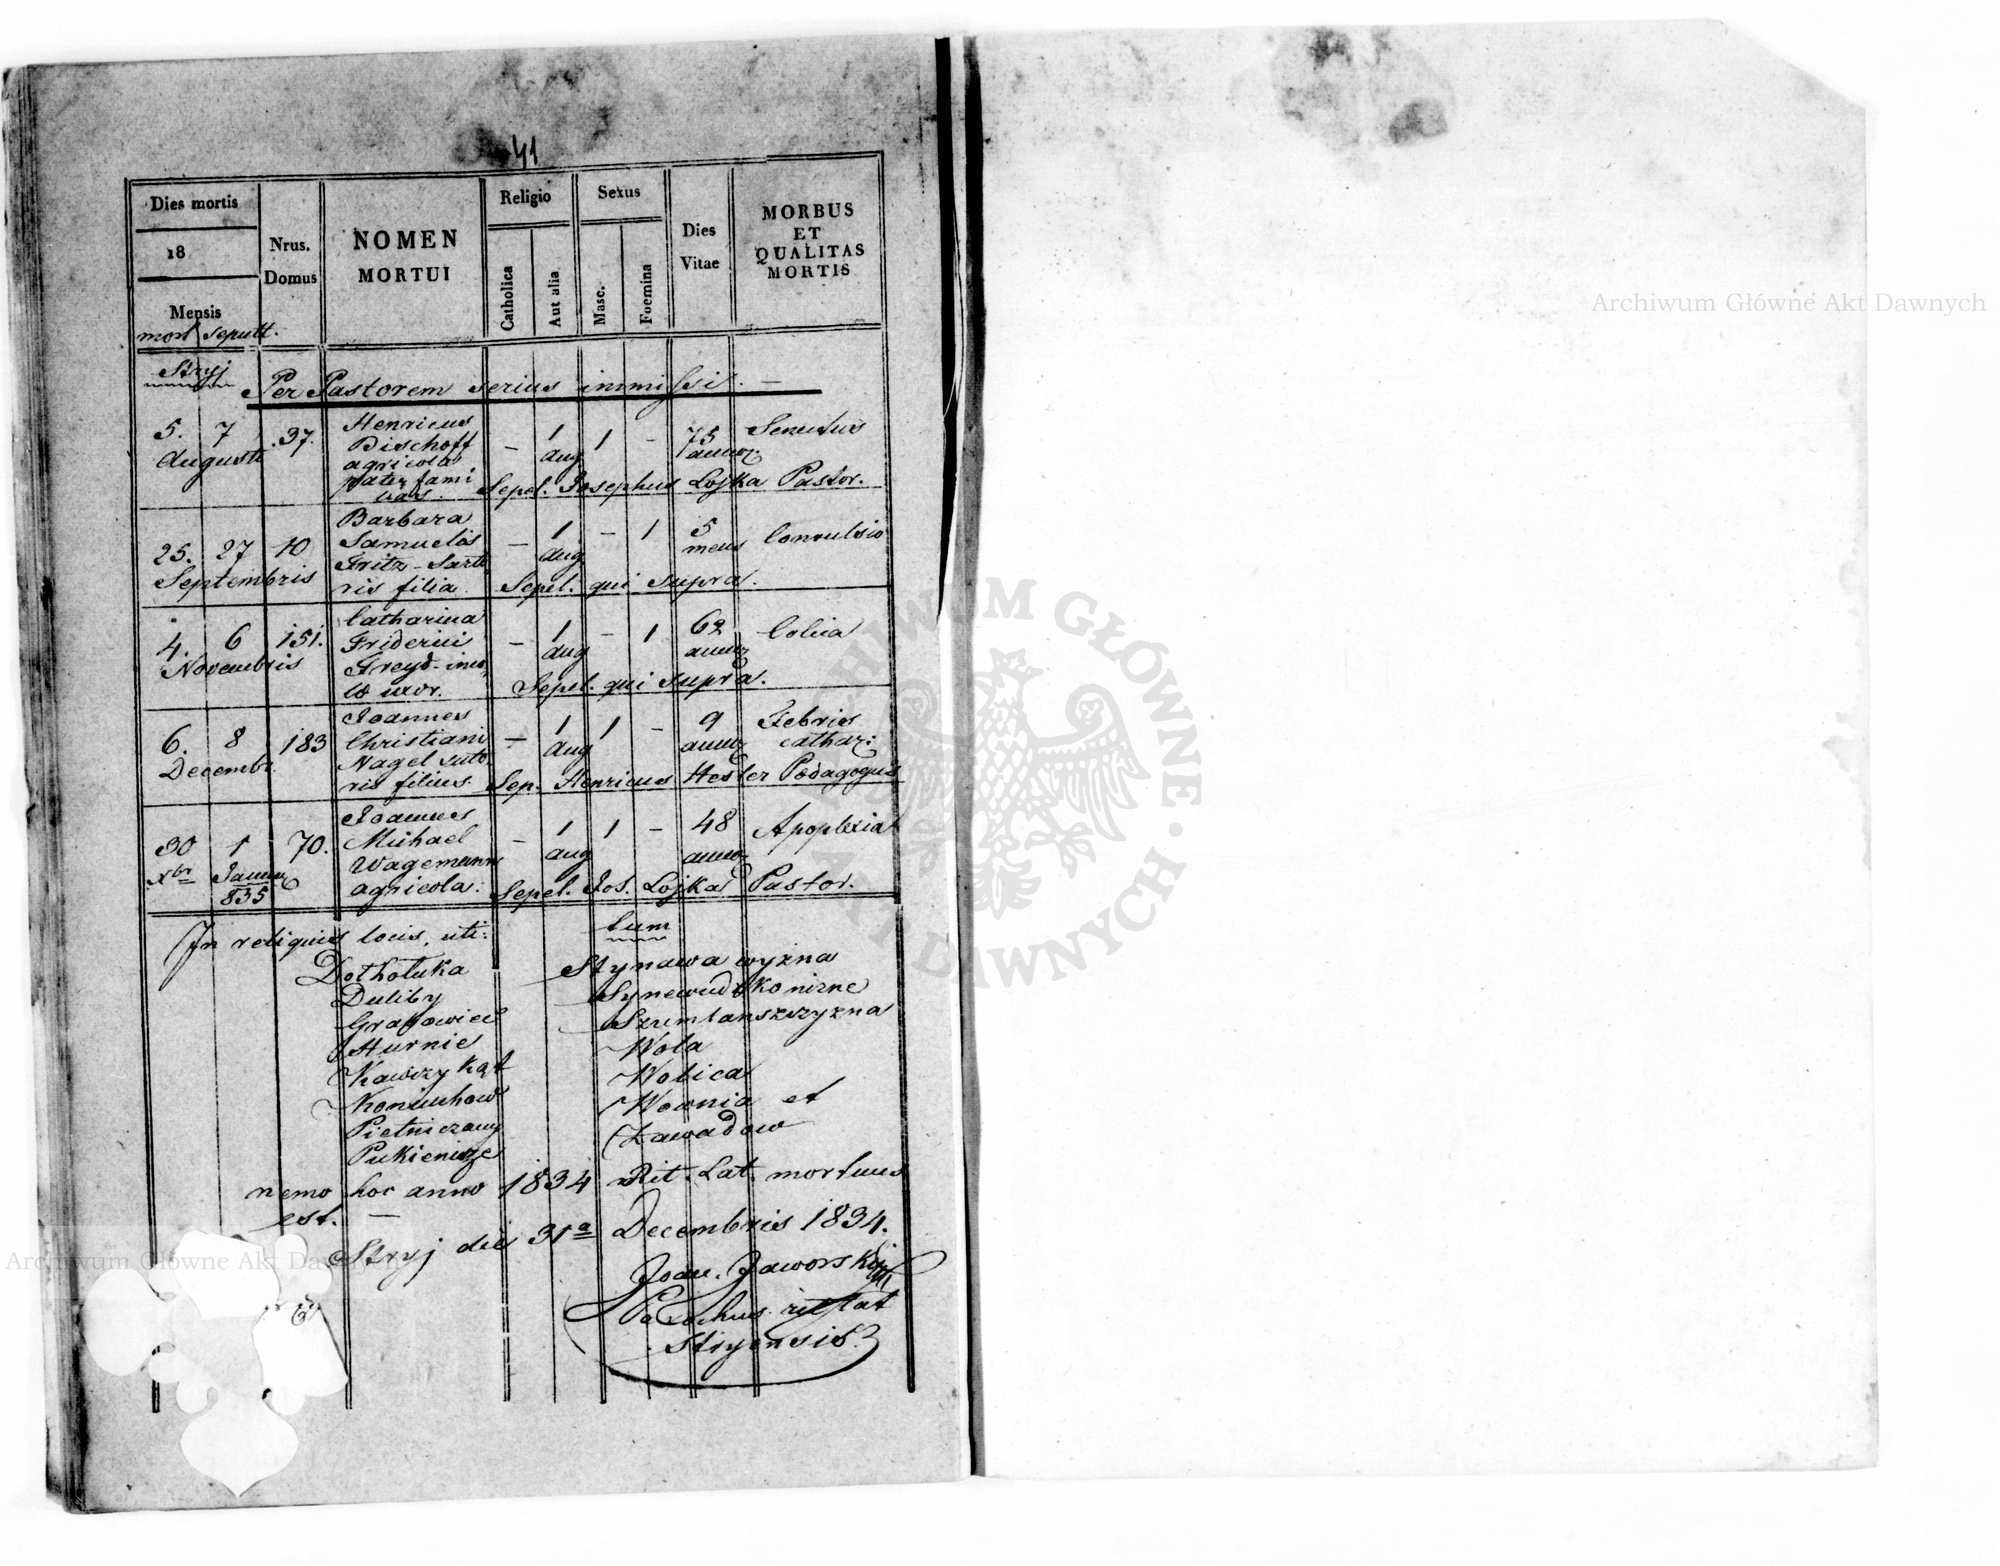 41
Dies mortis
18
Mensis
mort sepult.
Nrus.
Domus
NOMEN
MORTUI
Religio
Catholica
Aut alia
Sexus
Masc.
Foemina
Dies
Vitae
MORBUS
ET
QUALITAS
MORTIS
Stryj
Per Pastorem serius immissi. —
5. 7 37. Henricus – 1 1 – 75 Senectus
Augusti Bischoff aug annor.
agricola
pater fami
lias. Sepel. Josephus Lojka Pastor.
Barbara
25. 27 10 Samuelis – 1 – 1 5 Convulsio
Septembris Fritz – Sarto aug mens
ris filia. Sepel. qui supra.
Catharina
4. 6 151. Friderici – 1 – 1 62 Colica
Novembris Freyd – inco aug annor
lae uxor. Sepel. qui supra.
Joannes
6. 8 183 Christiani – 1 1 – 9 Febris
Decembr. Nagel suto aug annor cathar:
ris filius Sep. Henricus Hesler Pedagogus
Joannes
30 1 70. Michael – 1 1 – 48 Apoplexia
Xbr Januar Wagemann aug annor
835 agricola. Sepel. Jos. Lojka Pastor.
In reliquis locis, uti: tum
Dotholuka Stynawa wyzna
Duliby Synewudzko nizne
Grabowiec Szumlanszczyzna
Hurnie Wola
Kawczy Kąt Wolica
Koniuchow Wownia et
Pietniczany Zawadow
Pukienicze
nemo hoc anno 1834 Rit. Lat. mortuus
est. —
Stryj die 31a Decembris 1834.
Joan. Jaworski
Parochus rit lat
Stryensis
Archiwum Główne Akt Dawnych
Archiwum Główne Akt Dawnych
ARCHIWUM GŁÓWNE AKT DAWNYCH